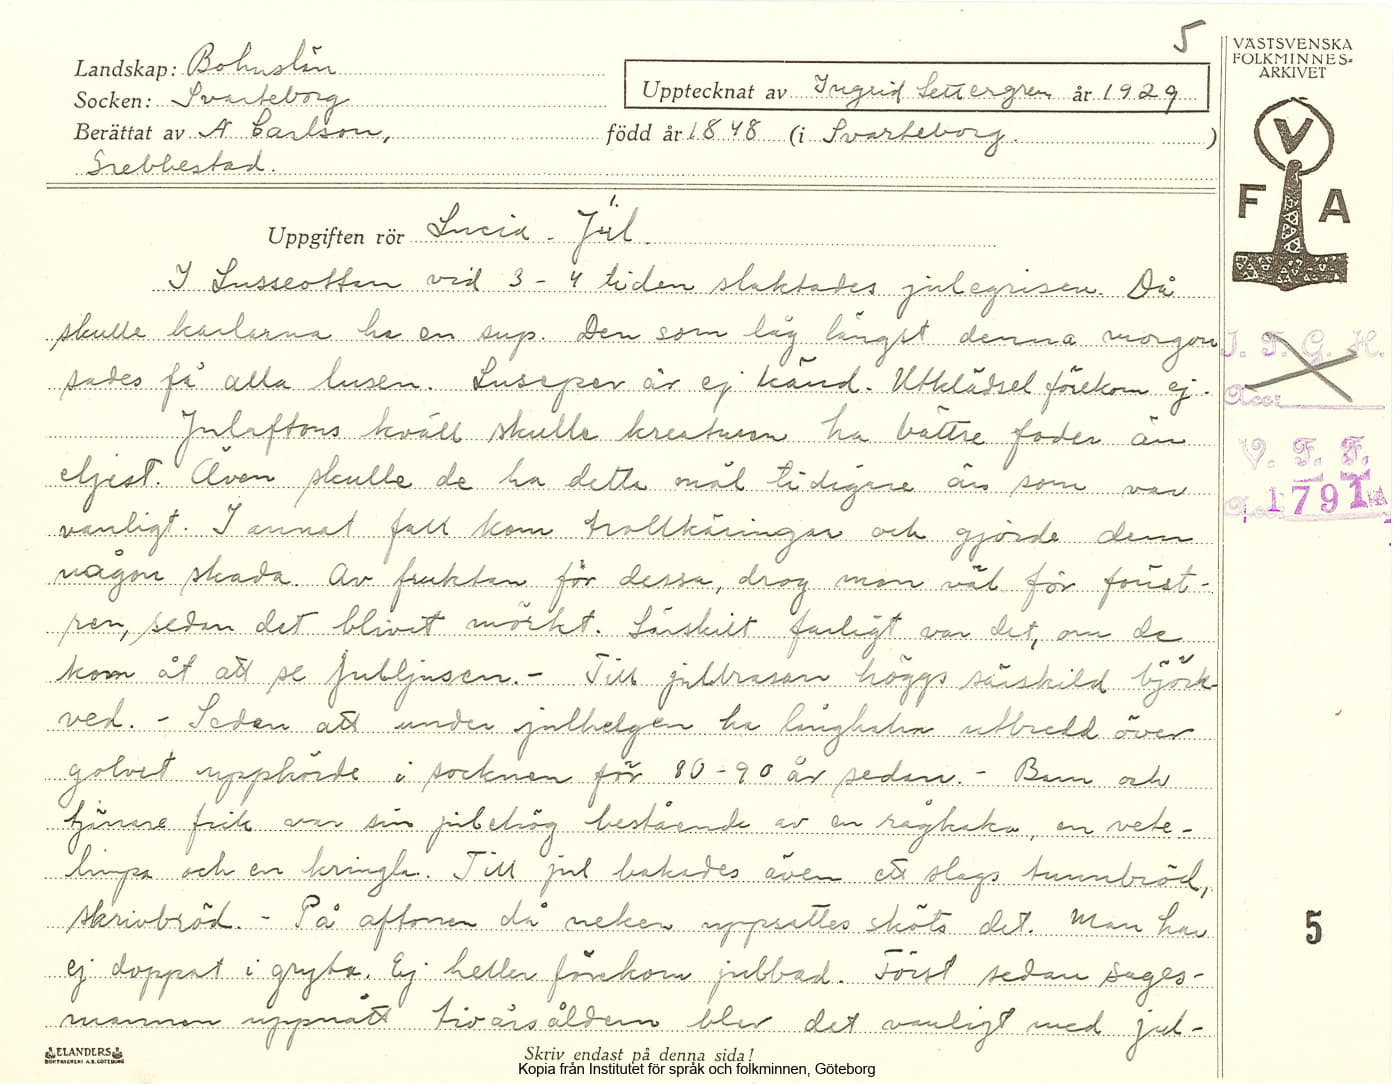 5
VÄSTSVENSKA
FOLKMINNES-
ARKIVET
Landskap: Bohuslän
Socken: Svarteborg
Upptecknat av Ingrid Settergren år 1929
Berättat av A Carlson, född år 1848 (i Svarteborg.)
Grebbestad.
V
F A
Uppgiften rör Lucia - Jul.
I Lusseottan vid 3-4 tiden slaktades julegrisen. Då
skulle karlarna ha en sup. Den som låg längst denna morgon
sades få alla lusen. Luseper är ej känd. Utklädsel förekom ej.
Julaftons kväll skulle kreaturen ha bättre foder än
eljest. Även skulle de ha detta mål tidigare än som var
vanligt. I annat fall kom trollkäringar och gjorde dem
någon skada. Av fruktan för dessa, drog man väl för fönst-
ren, sedan det blivit mörkt. Särskilt farligt var det, om de
kom åt att se julljusen. - Till julbrasan höggs särskild björk-
ved. - Seden att under julhelgen ha långhalm utbredd över
golvet upphörde i socknen för 80-90 år sedan. - Barn och
tjänare fick var sin julehög bestående av en rågkaka, en vete-
limpa och en kringla. Till jul bakades även ett slags tunnbröd,
skrivbröd. - På aftonen då neken uppsattes sköts det. Man har
ej doppat i gryta. Ej heller förekom julbad. Först sedan sages-
mannen uppnått tioårsåldern blev det vanligt med jul-
I. F. G. H.
Acc:
V. F. F.
1791
5
ELANDERS
BOKTRYCKERI A.B. GÖTEBORG
Skriv endast på denna sida!
Kopia från Institutet för språk och folkminnen, Göteborg